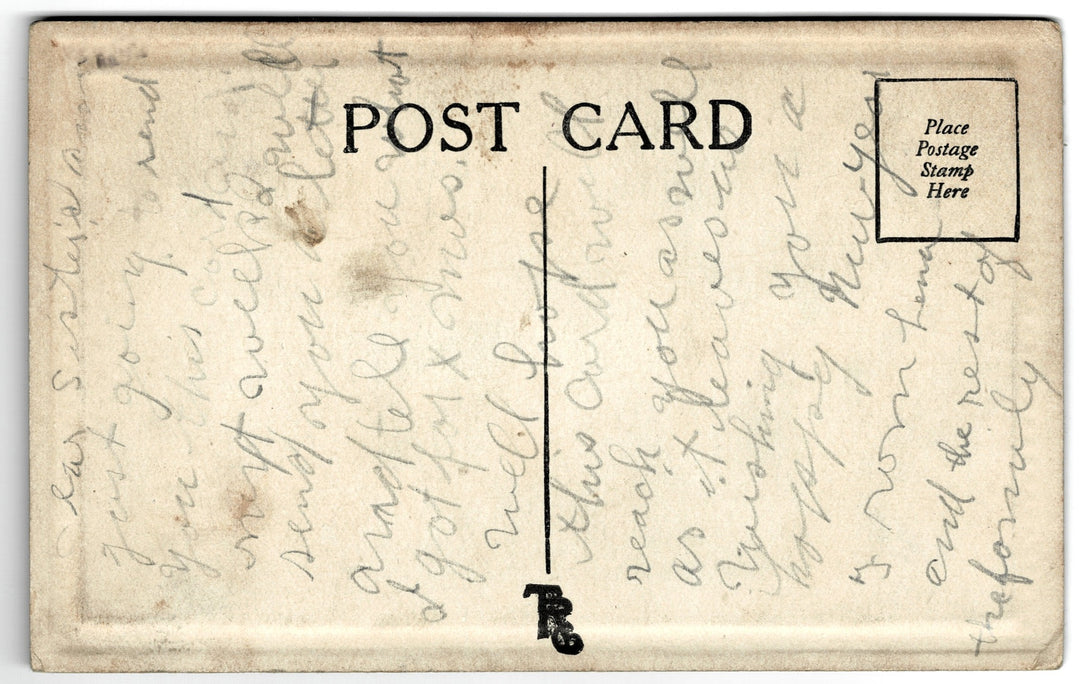 POST CARD
Place
Postage
Stamp
Here
ear Sister
just going to send
you this
next week I will
send you a letter
and tell you what
I got for x mos.
well hope
this card will
reach you as well
as it leaves us
Wishing you a
happy nu-yer
from
and the rest of
the fomuly